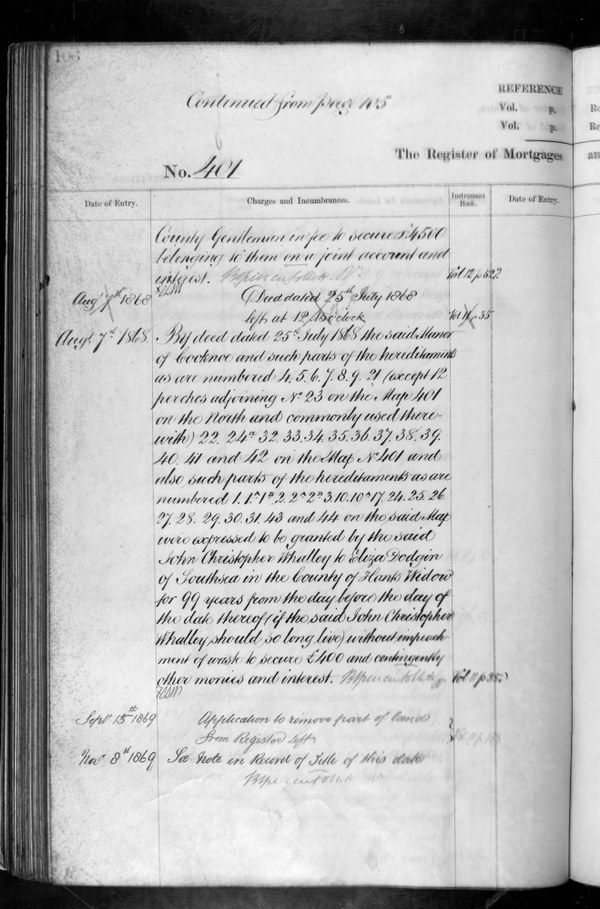 106
Continued from page 105
REFERENCE
Vol. p.
Vol. p.
No. 401
The Register of Mortgages
an
Date of Entry.
Charges and Incumbrances.
Instrument Book.
Date of Entry.
County Gentleman in fee to secure £4500
belonging to them on a joint account and
interest.
Vol 12 p 522
Augt 7th 1868
Deed dated 25th July 1868
left at 12 o'clock
Vol 11 p 35
Augt 7th 1868.
By deed dated 25th July 1868 the said Manor
of Cocknoe and such parts of the hereditaments
as are numbered 4. 5. 6. 7. 8. 9. 21 (except 12
perches adjoining No 23 on the Map 401
on the North and commonly used there-
with) 22. 24a 32. 33. 34. 35. 36 37. 38. 39.
40. 41 and 42 on the Map No 401 and
also such parts of the hereditaments as are
numbered 1. 1a 2. 3. 10. 17. 24. 25. 26.
27. 28. 29. 30. 31. 43 and 44 on the said Map
were expressed to be granted by the said
John Christopher Whalley to Eliza Dodgin
of Southsea in the County of Hants Widow
for 99 years from the day before the day of
the date thereof (if the said John Christopher
Whalley should so long live) without impeach-
ment of waste to secure £400 and contingently
other monies and interest.
Vol 11 p 35
Septr 15th 1869
Application to remove part of lands
from Register left
Novr 8th 1869
See Note in Record of Title of this date